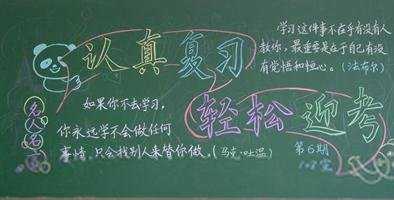 认真复习
学习这件事不在乎有没有人
教你，最重要是在于自己有没
有觉悟和恒心。（法布尔）
轻松迎考
名人名言
如果你不去学习，
你永远学不会做任何
事情，只会找别人来替你做。（马克·吐温）
第6期